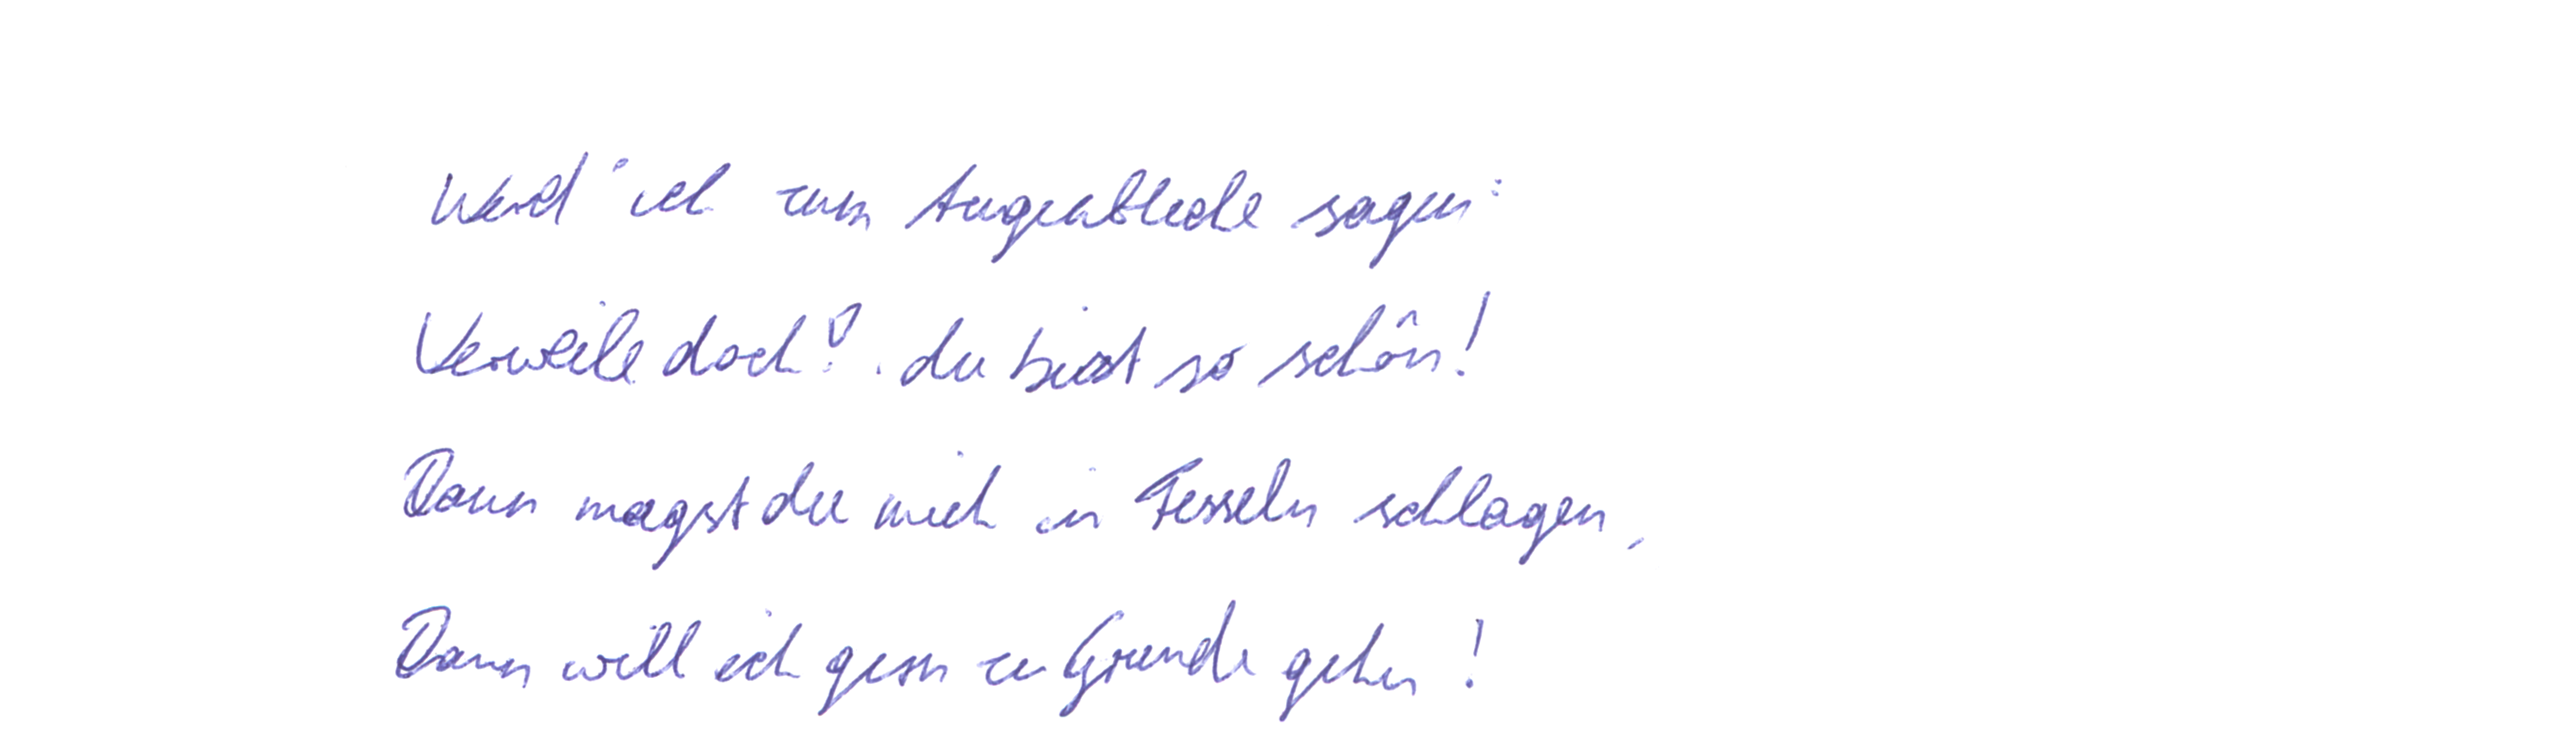 Werd' ich zum Augenblicke sagen:
Verweile doch! du bist so schön!
Dann magst du mich in Fesseln schlagen,
Dann will ich gern zu Grunde gehen!